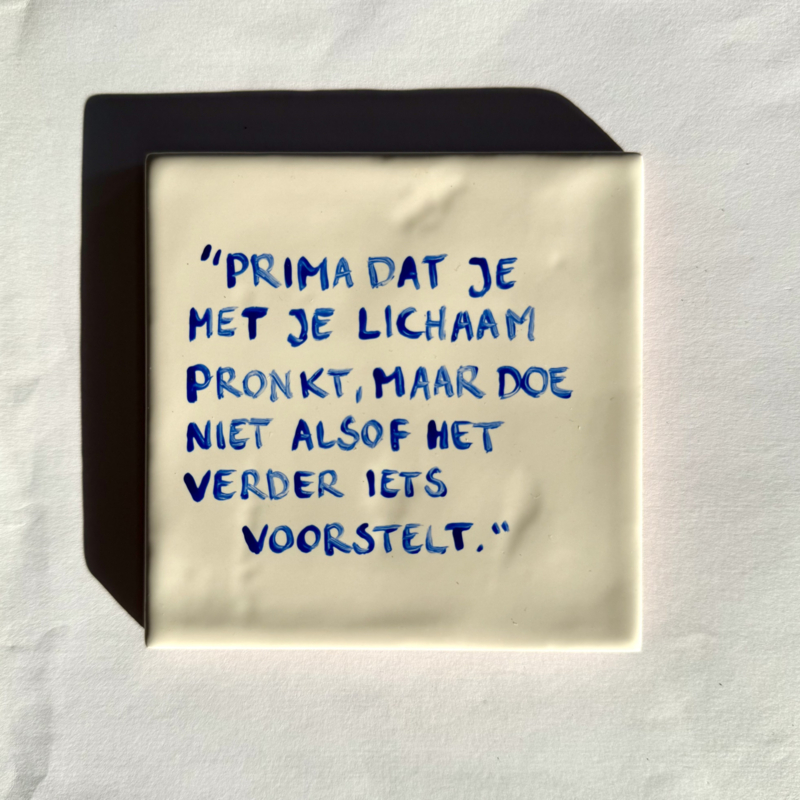 “PRIMA DAT JE
MET JE LICHAAM
PRONKT, MAAR DOE
NIET ALSOF HET
VERDER IETS
VOORSTELT.“